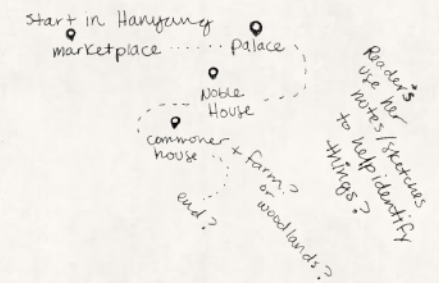 start in Hanyang
marketplace
Palace
Noble
House
commoner
house
+ farm?
or
woodlands?
end?
Reader's
use her
notes/sketches
to help identify
things?